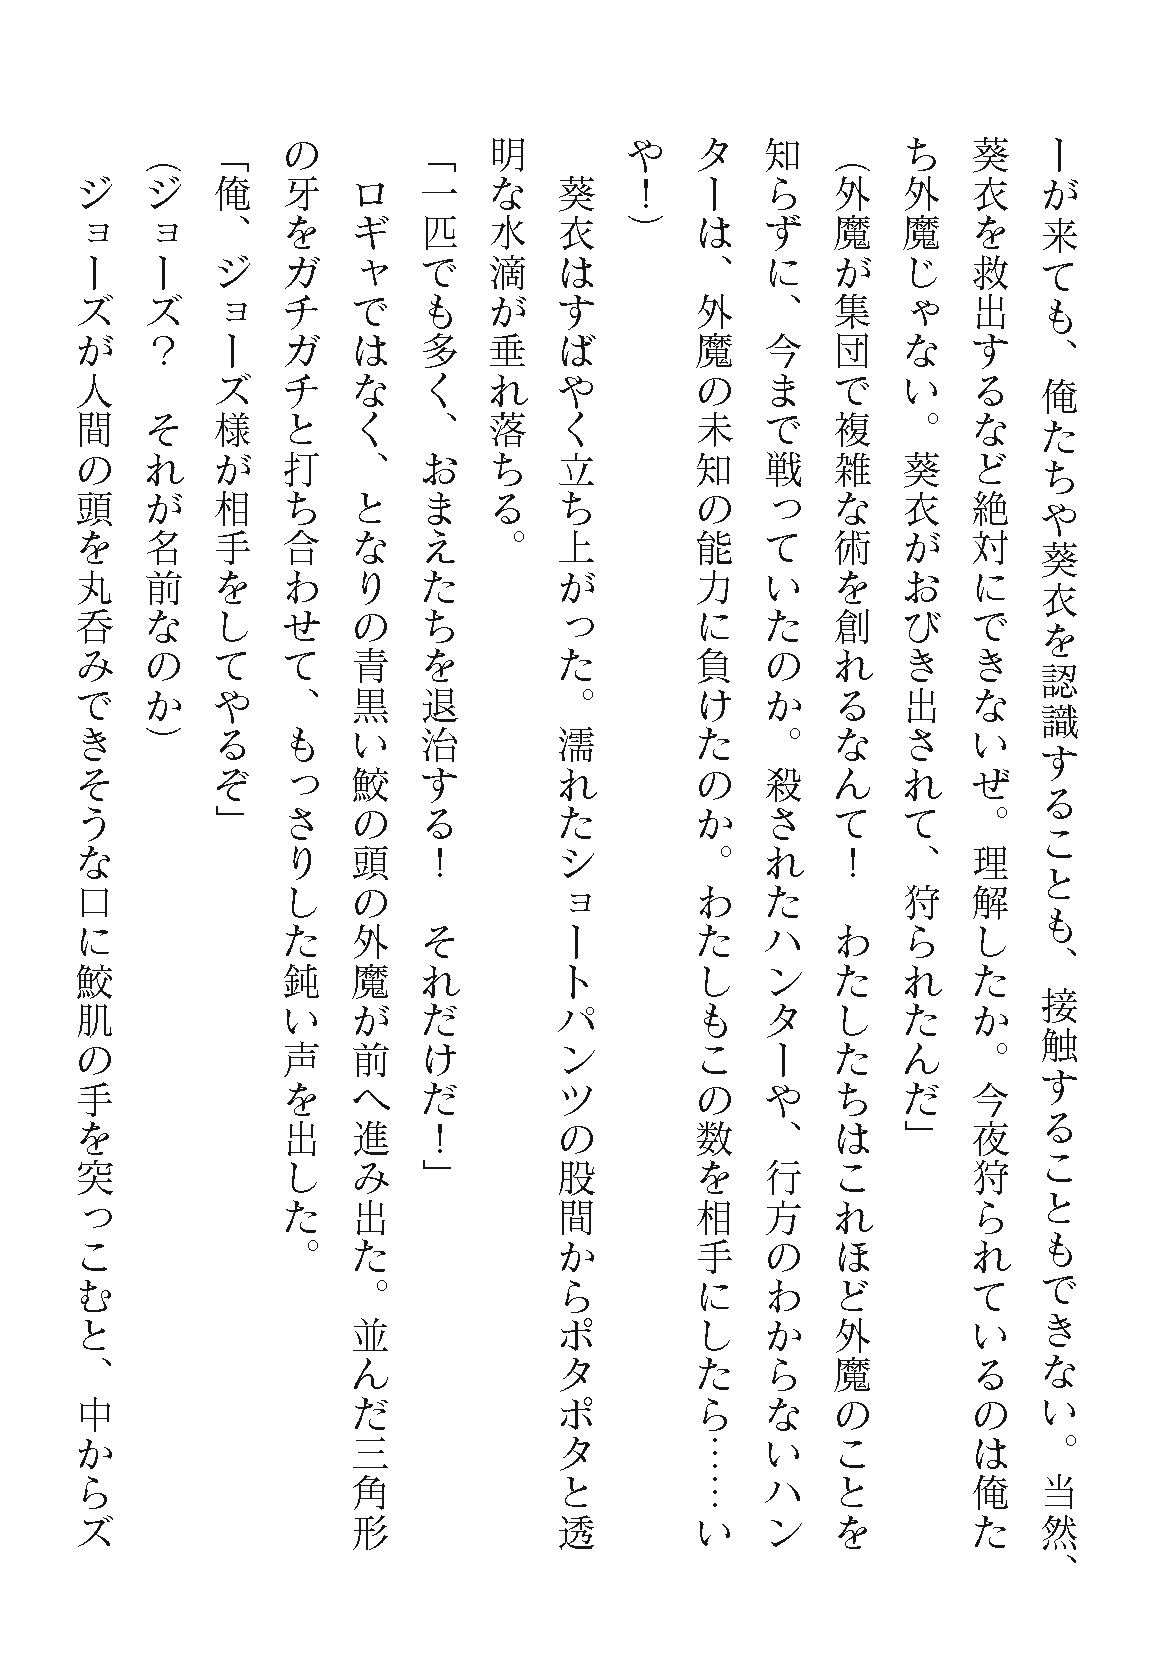 ーが来ても、俺たちや葵衣を認識することも、接触することもできない。当然、
葵衣を救出するなど絶対にできないぜ。理解したか。今夜狩られているのは俺た
ち外魔じゃない。葵衣がおびき出されて、狩られたんだ」
（外魔が集団で複雑な術を創れるなんて！　わたしたちはこれほど外魔のことを
知らずに、今まで戦っていたのか。殺されたハンターや、行方のわからないハン
ターは、外魔の未知の能力に負けたのか。わたしもこの数を相手にしたら……い
や！）
　葵衣はすばやく立ち上がった。濡れたショートパンツの股間からポタポタと透
明な水滴が垂れ落ちる。
「一匹でも多く、おまえたちを退治する！　それだけだ！」
　ロギャではなく、となりの青黒い鮫の頭の外魔が前へ進み出た。並んだ三角形
の牙をガチガチと打ち合わせて、もっさりした鈍い声を出した。
「俺、ジョーズ様が相手をしてやるぞ」
（ジョーズ？　それが名前なのか）
　ジョーズが人間の頭を丸呑みできそうな口に鮫肌の手を突っこむと、中からズ